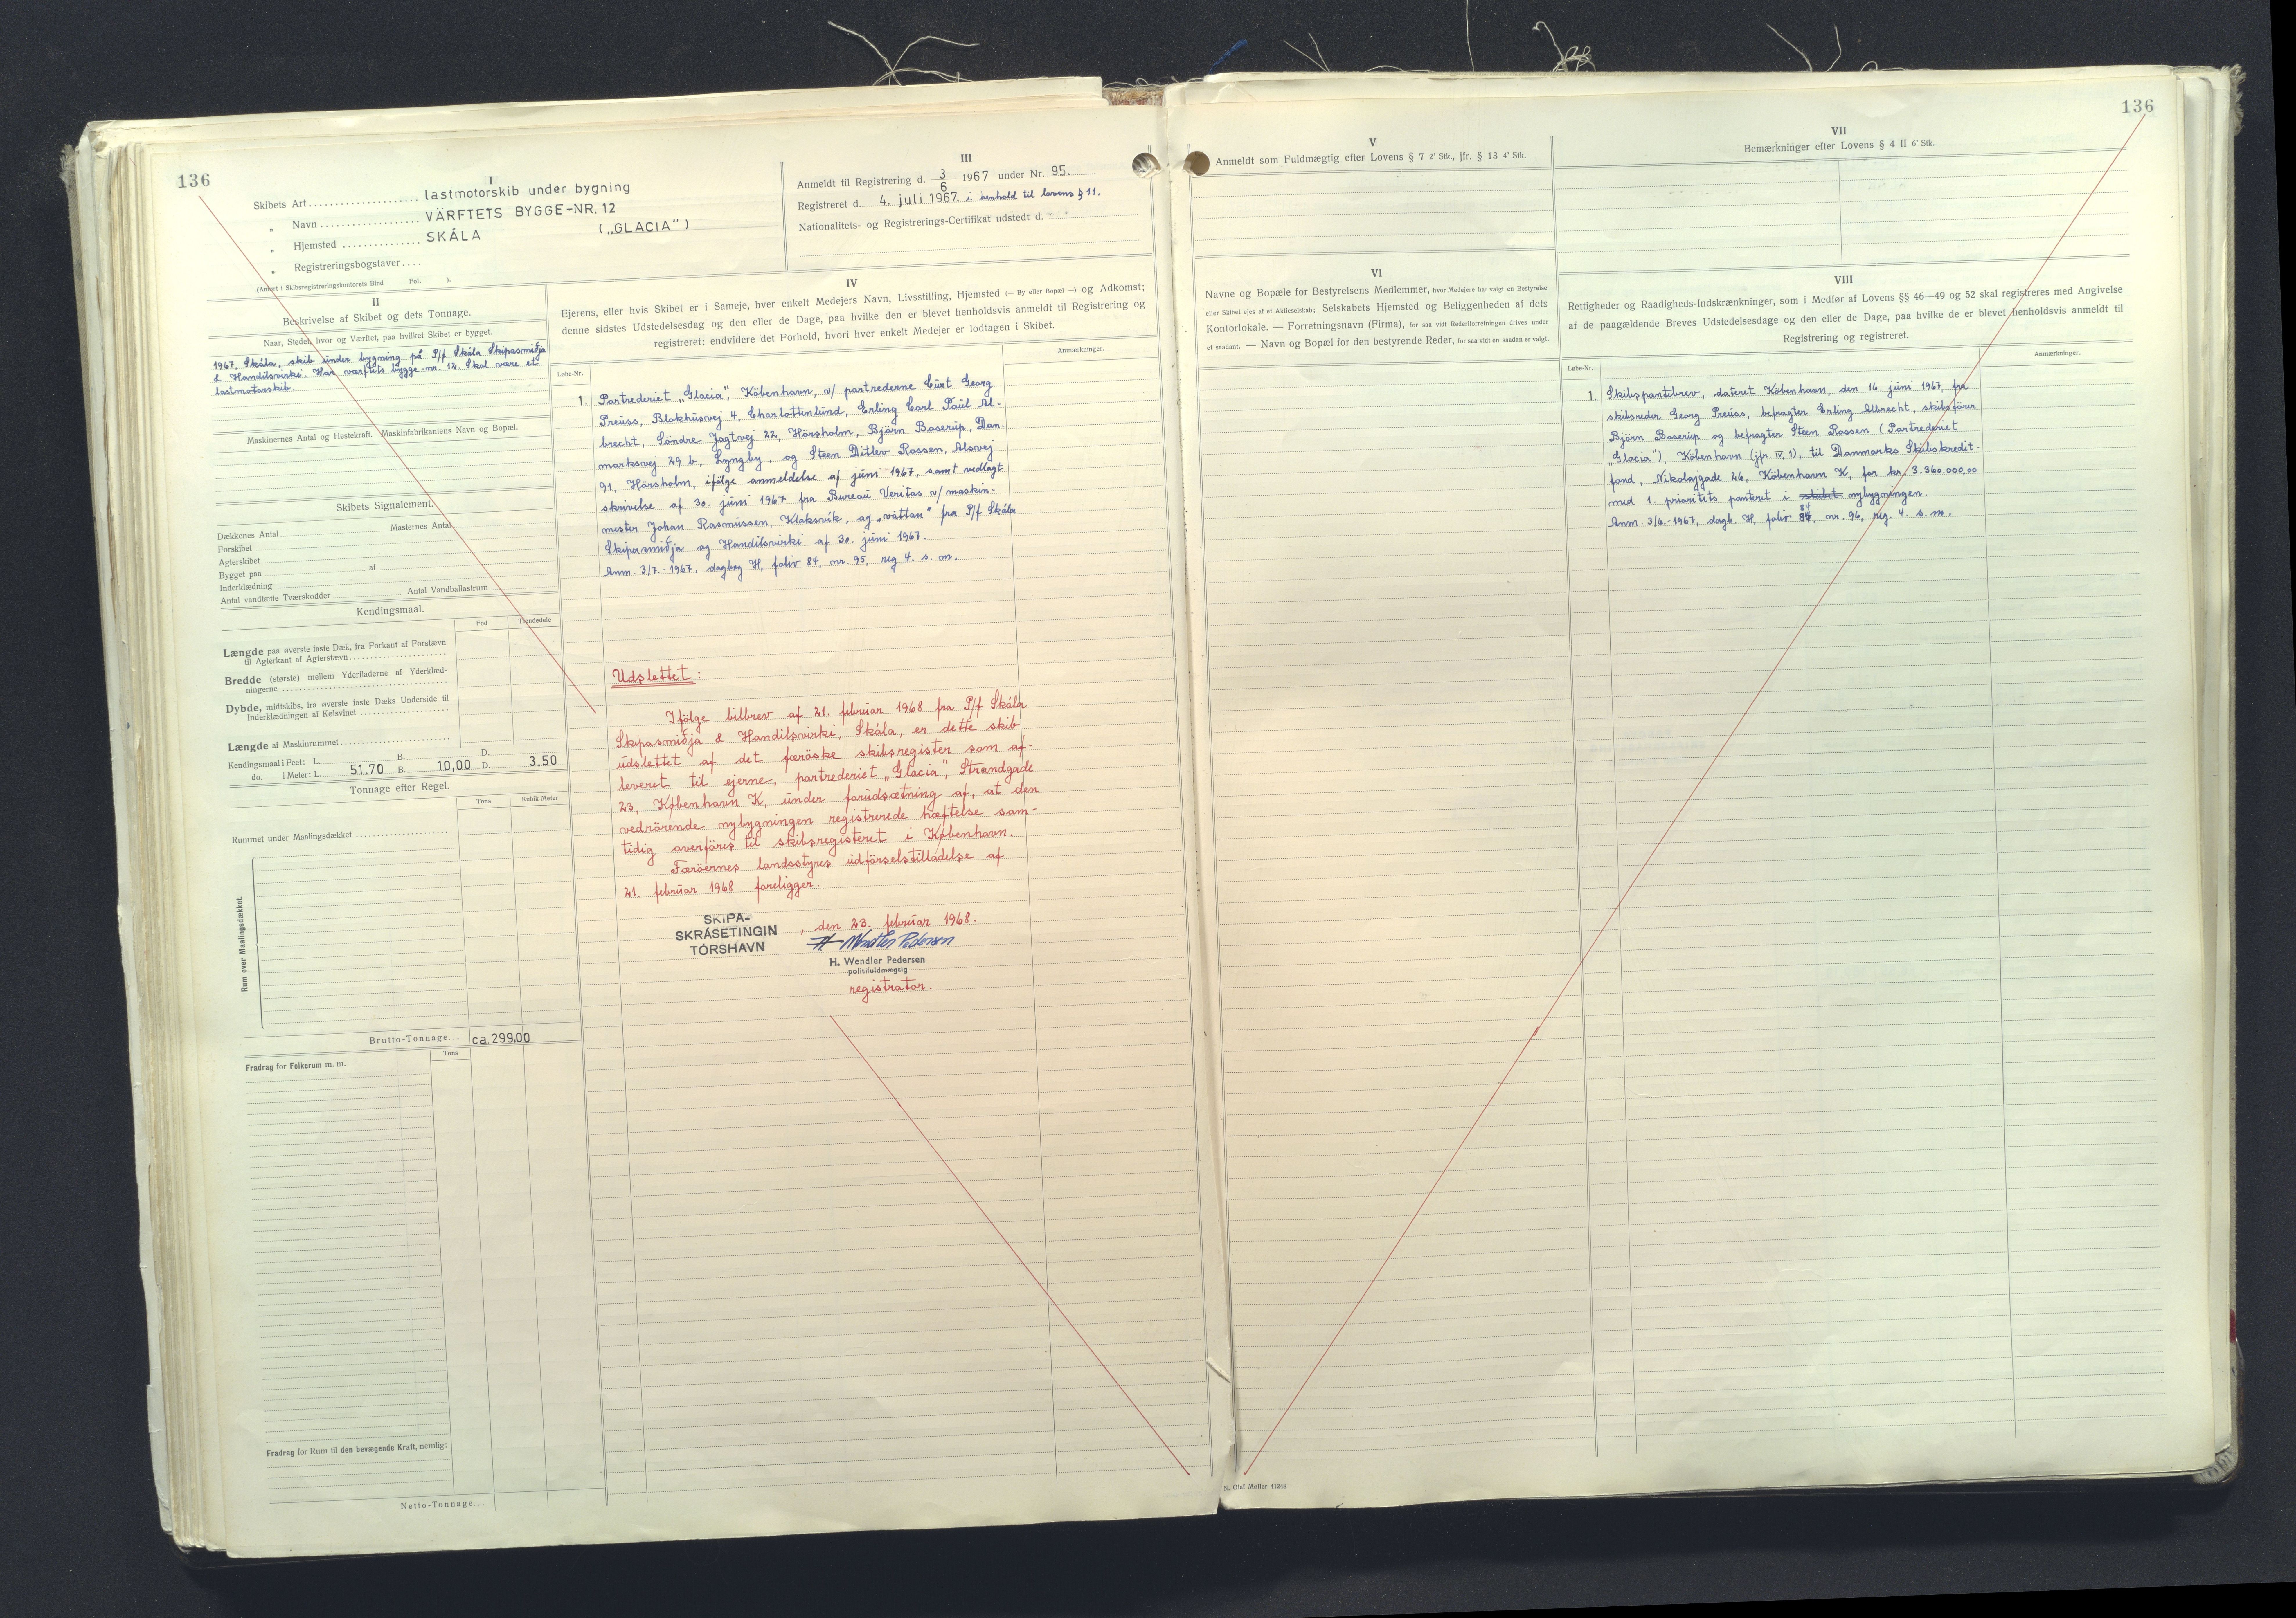 136
I
Skibets Art.................... lastmotorskib under bygning
„ Navn.................. VÄRFTETS BYGGE-NR. 12
„ Hjemsted .............. SKÁLA („GLACIA")
„ Registreringsbogstaver....
(Anført i Skibsregistreringskontorets Bind Fol. ).
II
Beskrivelse af Skibet og dets Tonnage.
Naar, Stedet, hvor og Værftet, paa hvilket Skibet er bygget.
1967, Skála, skib under bygning på P/f Skála Skipasmiðja
& Handilsvirki. Har værftets bygge-nr. 12. Skal være et
lastmotorskib.
Maskinernes Antal og Hestekraft. Maskinfabrikantens Navn og Bopæl.
Skibets Signalement.
Dækkenes Antal Masternes Antal
Forskibet
Agterskibet
Bygget paa af
Inderklædning
Antal vandtætte Tværskodder Antal Vandballastrum
Kendingsmaal.
Fod Tiendedele
Længde paa øverste faste Dæk, fra Forkant af Forstævn
til Agterkant af Agterstævn
Bredde (største) mellem Yderfladerne af Yderklæd-
ningerne
Dybde, midtskibs, fra øverste faste Dæks Underside til
Inderklædningen af Kølsvinet
Længde af Maskinrummet
Kendingsmaal i Feet: L. B. D.
do. i Meter: L. 51.70 B. 10,00 D. 3.50
Tonnage efter Regel.
Tons Kubik-Meter
Rummet under Maalingsdækket
Rum over Maalingsdækket.
Brutto-Tonnage... ca. 299.00
Fradrag for Folkerum m. m. Tons
Fradrag for Rum til den bevægende Kraft, nemlig:
Netto-Tonnage...
III
Anmeldt til Registrering d. 3/6 1967 under Nr. 95.
Registreret d. 4. juli 1967. i henhold til lovens § 11.
Nationalitets- og Registrerings-Certifikat udstedt d.
IV
Ejerens, eller hvis Skibet er i Sameje, hver enkelt Medejers Navn, Livsstilling, Hjemsted (— By eller Bopæl —) og Adkomst;
denne sidstes Udstedelsesdag og den eller de Dage, paa hvilke den er blevet henholdsvis anmeldt til Registrering og
registreret; endvidere det Forhold, hvori hver enkelt Medejer er lodtagen i Skibet.
Løbe-Nr. Anmærkninger.
1. Partrederiet „Glacia", København, v/ partrederne Curt Georg
Preuss, Blokhusvej 4, Charlottenlund, Erling Carl Paul Al-
brecht, Söndre Jagtvej 22, Hörsholm, Björn Baserup, Dan-
marksvej 29 b, Lyngby, og Steen Ditlev Rossen, Alsvej
91, Hörsholm, ifölge anmeldelse af juni 1967, samt vedlagt
skrivelse af 30. juni 1967 fra Bureau Veritas v/ maskin-
mester Johan Rasmussen, Klaksvík, og „váttan" fra P/f Skála
Skipasmiðja og Handilsvirki af 30. juni 1967.
Anm. 3/7.-1967, dagbog H, folio 84, nr. 95, reg 4. s. m.
Udslettet:
Ifölge bilbrev af 21. februar 1968 fra P/f Skála
Skipasmiðja & Handilsvirki, Skála, er dette skib
udslettet af det færöske skibsregister som af-
leveret til ejerne, partrederiet „Glacia", Strandgade
23, København K, under forudsætning af, at den
vedrörende nybygningen registrerede hæftelse sam-
tidig overföres til skibsregisteret i København.
Færöernes landsstyres udförselstilladelse af
21. februar 1968 foreligger.
SKIPA-
SKRÁSETINGIN
TÓRSHAVN
, den 23. februar 1968.
H. Wendler Pedersen
H. Wendler Pedersen
politifuldmægtig
registrator.
136
V
Anmeldt som Fuldmægtig efter Lovens § 7 2' Stk., jfr. § 13 4' Stk.
VI
Navne og Bopæle for Bestyrelsens Medlemmer, hvor Medejere har valgt en Bestyrelse
eller Skibet ejes af et Aktieselskab; Selskabets Hjemsted og Beliggenheden af dets
Kontorlokale. — Forretningsnavn (Firma), for saa vidt Rederiforretningen drives under
et saadant. — Navn og Bopæl for den bestyrende Reder, for saa vidt en saadan er valgt.
VII
Bemærkninger efter Lovens § 4 II 6' Stk.
VIII
Rettigheder og Raadigheds-Indskrænkninger, som i Medfør af Lovens §§ 46—49 og 52 skal registreres med Angivelse
af de paagældende Breves Udstedelsesdage og den eller de Dage, paa hvilke de er blevet henholdsvis anmeldt til
Registrering og registreret.
Løbe-Nr. Anmærkninger.
1. Skibspantebrev, dateret København, den 16. juni 1967, fra
skibsreder Georg Preuss, befragter Erling Albrecht, skibsförer
Björn Baserup og befragter Steen Rossen (Partrederiet
„Glacia"), København (jfr. IV, 1), til Danmarks Skibskredit-
fond, Nikolajgade 26, København K, for kr. 3.360.000,00
med 1. prioritets panteret i skibet nybygningen.
Anm. 3/6.-1967, dagb. H, folio 84, nr. 96, reg. 4. s. m.
N. Olaf Møller 41248